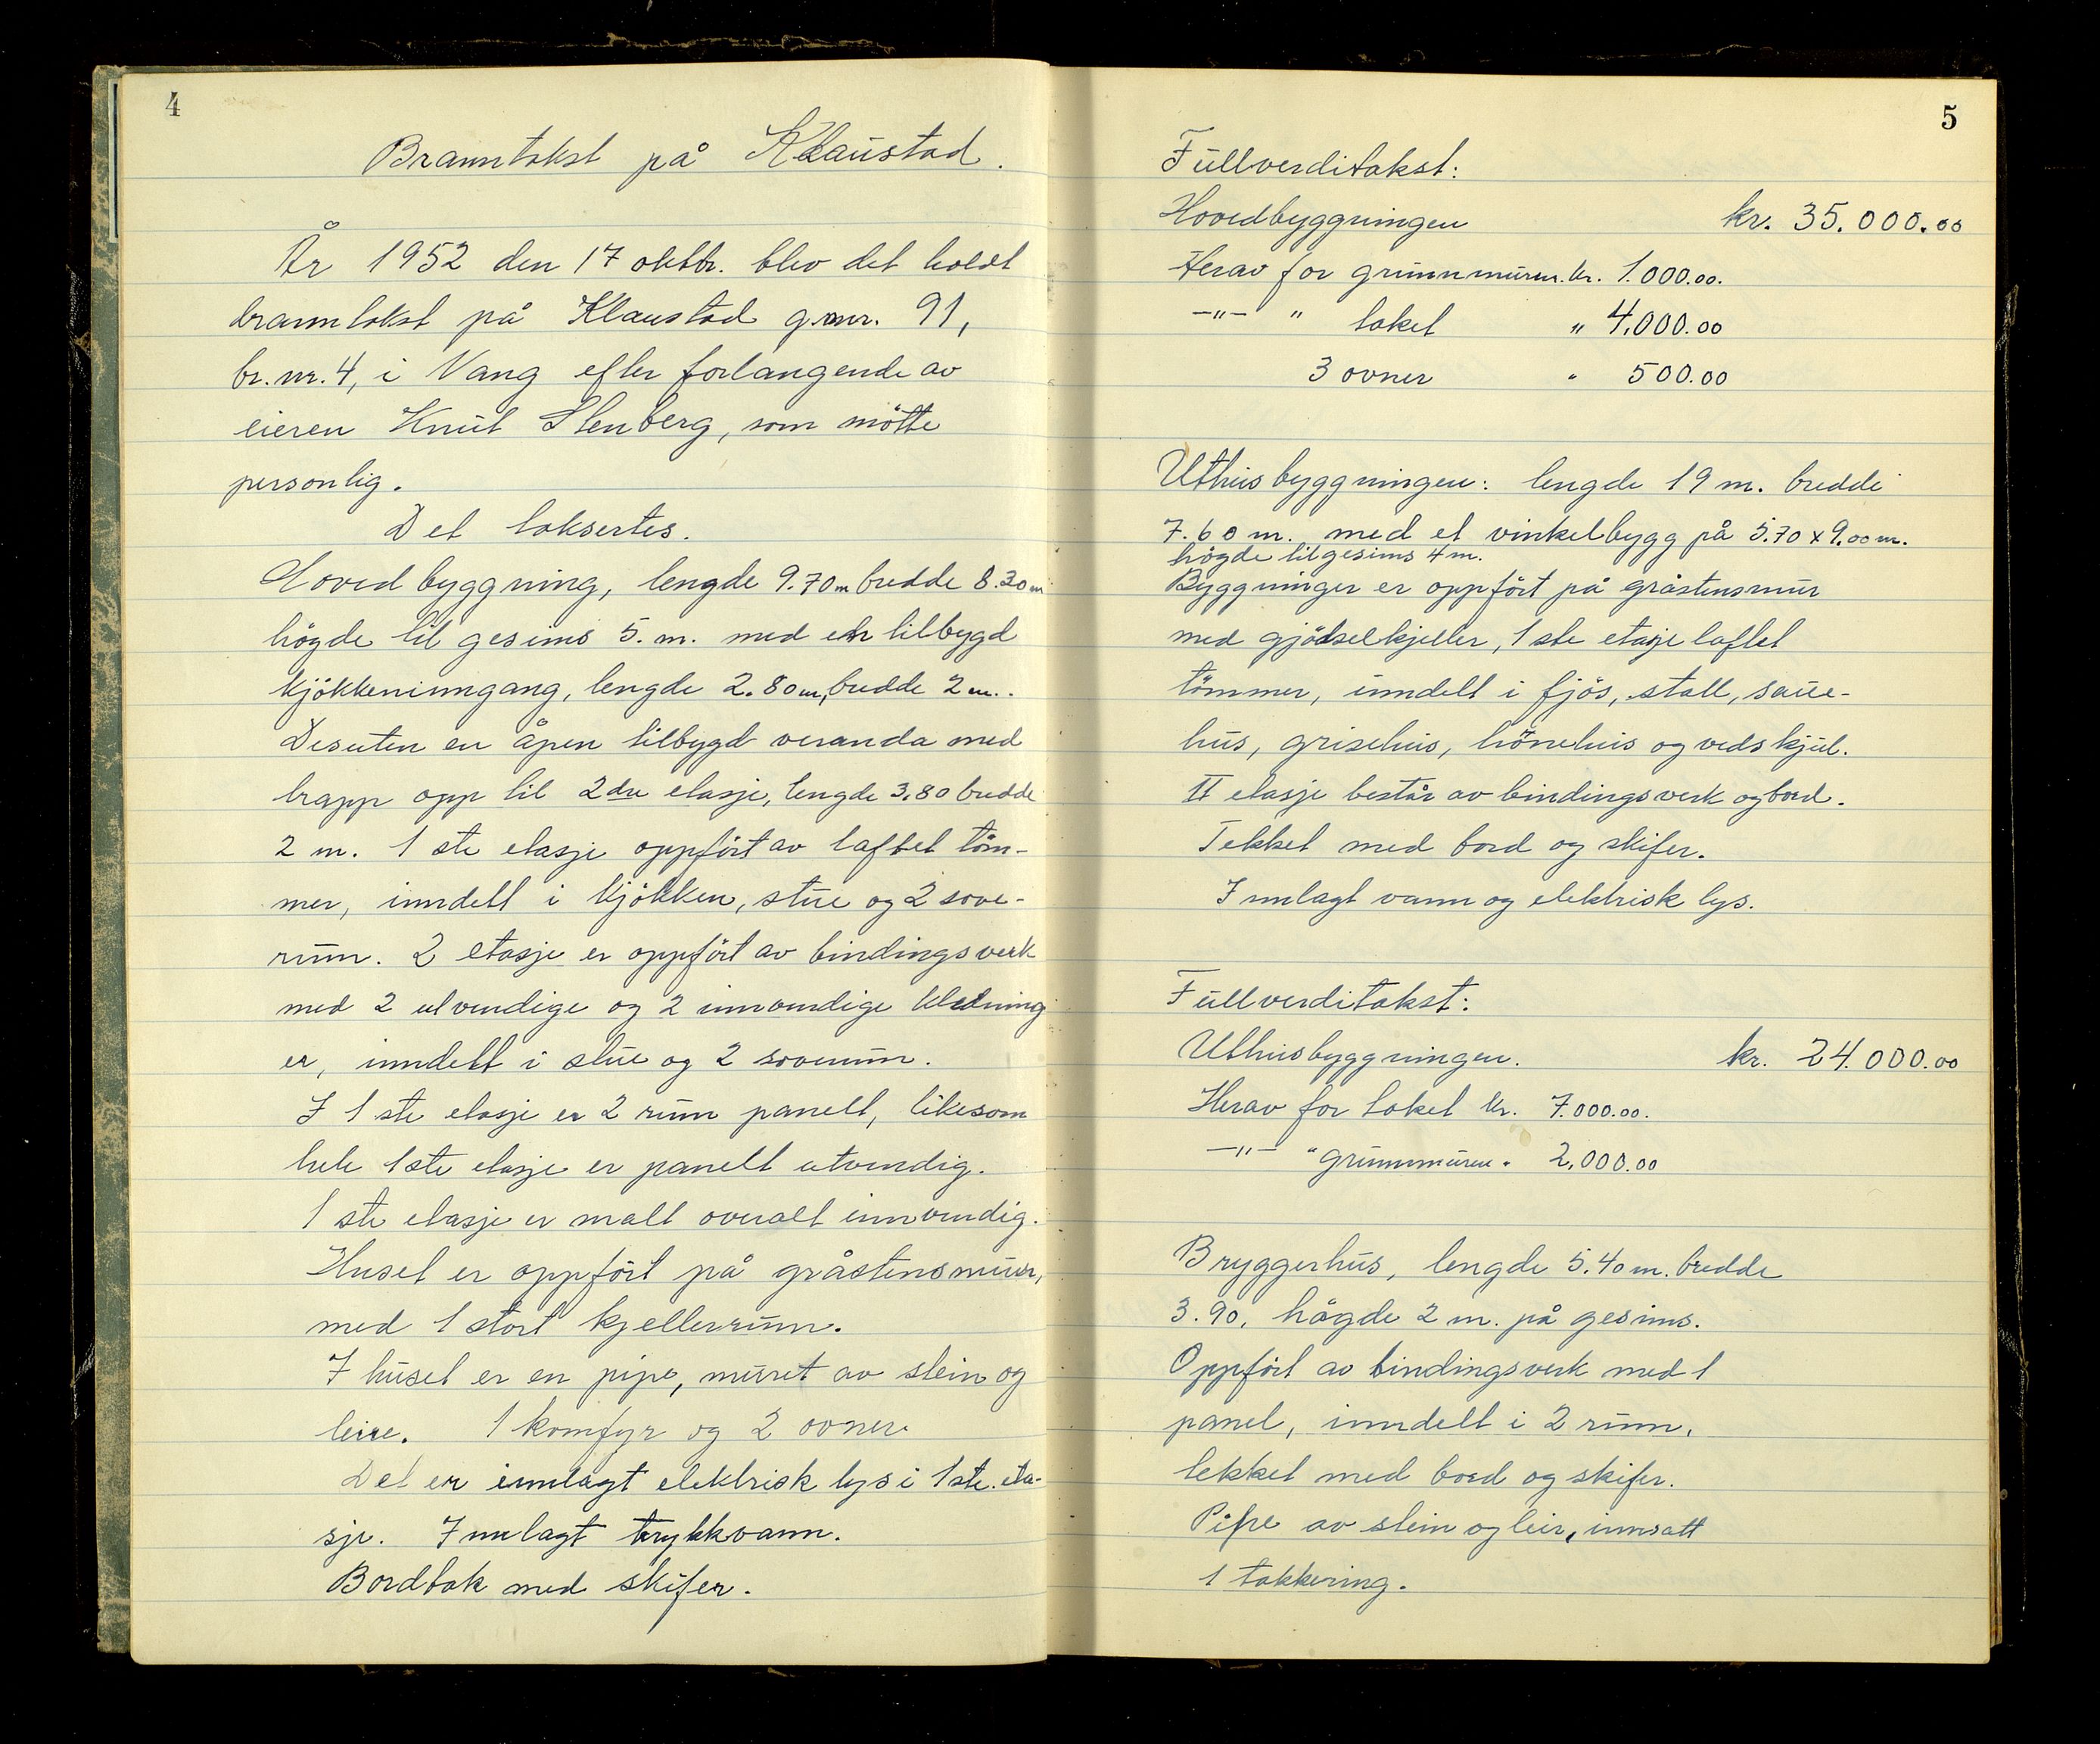 4
Branntakst på Klaustad.
År 1952 den 17 oktbr. blev det holdt
branntakst på Klaustad g.nr. 91,
br.nr. 4, i Vang efter forlangende av
eieren Knut Stenberg, som mötte
personlig.
Det taksertes.
Hovedbyggning, lengde 9.70 m bredde 8.30 m
högde til gesims 5. m. med en tilbygd
kjökkeninngang, lengde 2.80 m, bredde 2 m.
Desuten en åpen tilbygd veranda med
trapp opp til 2dre etasje, lengde 3,80 bredde
2 m. 1 ste etasje oppfört av laftet töm-
mer, inndelt i kjökken, stue og 2 sove-
rum. 2 etasje er oppfört av bindingsverk
med 2 utvendige og 2 innvendige kledning
er, inndelt i stue og 2 soverum.
I 1 ste etasje er 2 rum panelt, likesom
hele 1ste etasje er panelt utvendig.
1 ste etasje er malt overalt innvendig.
Huset er oppfört på gråstensmur,
med 1 stort kjellerrum.
I huset er en pipe, muret av stein og
leire. 1 komfyr og 2 ovner.
Det er innlagt elektrisk lys i 1ste. eta-
sje. Innlagt trykkvann.
Bordtak med skifer.
5
Fullverditakst:
Hovedbyggningen kr. 35.000.00
Herav for grunnmuren. kr. 1.000.00.
—"— " taket " 4,000.00
3 ovner " 500.00
Uthusbyggningen: lengde 19 m. bredde
7.60 m. med et vinkelbygg på 5.70 x 9.00 m.
högde til gesims 4 m.
Byggninger er oppfört på gråstensmur
med gjödselkjeller, 1 ste etasje laftet
tömmer, inndelt i fjös, stall, saue-
hus, grisehus, hönehus og vedskjul.
II etasje består av bindingsverk og bord.
Tekket med bord og skifer.
Innlagt vann og elektrisk lys.
Fullverditakst:
Uthusbyggningen. kr. 24.000.00
Herav for taket kr. 7.000.00.
—"— " grunnmuren " 2,000.00
Bryggerhus, lengde 5.40 m. bredde
3.90, högde 2 m. på gesims.
Oppfört av bindingsverk med 1
panel, inndelt i 2 rum,
tekket med bord og skifer.
Pipe av stein og leir, innsatt
1 takkering.